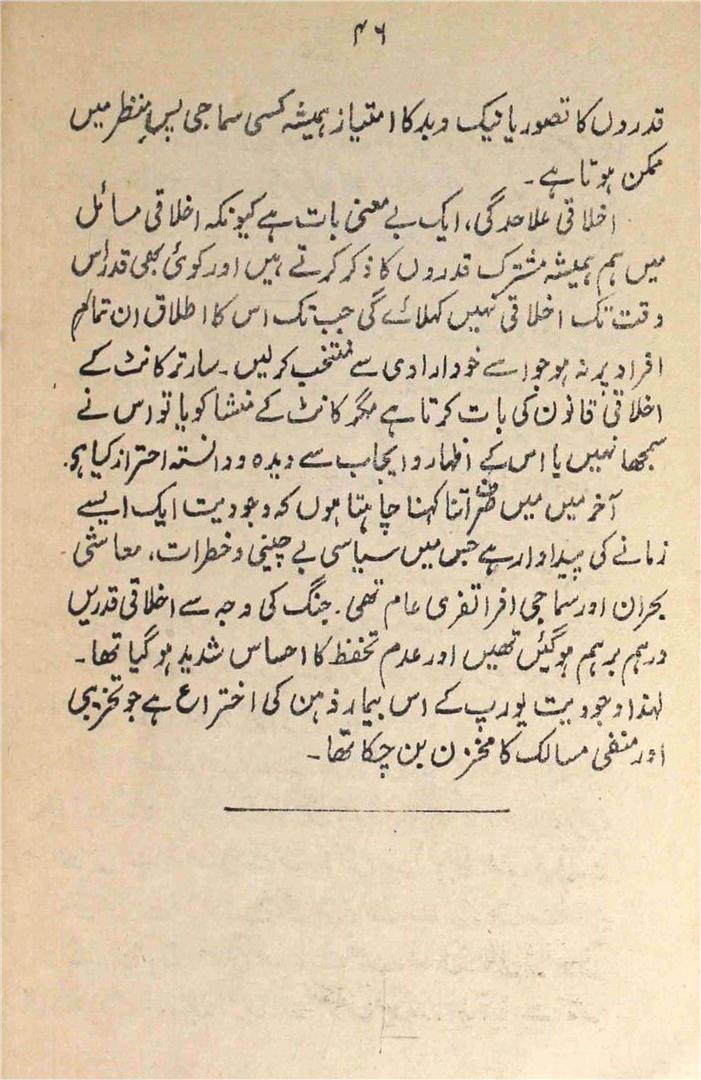 ۴۶
قدروں کا تصور یا نیک و بد کا امتیاز ہمیشہ کسی سماجی پسِ منظر میں
ممکن ہوتا ہے۔
اخلاقی علاحدگی، ایک بے معنی بات ہے کیونکہ اخلاقی مسائل
میں ہم ہمیشہ مشترک قدروں کا ذکر کرتے ہیں اور کوئی بھی قدر اُس
وقت تک اخلاقی نہیں کہلائے گی جب تک اس کا اطلاق ان تمام
افراد پر نہ ہو جو اسے خود ارادی سے منتخب کرلیں۔ سارتر کانٹ کے
اخلاقی قانون کی بات کرتا ہے مگر کانٹ کے منشا کو یا تو اس نے
سمجھا نہیں یا اس کے اظہار و ایجاب سے دیدہ و دانستہ احتراز کیا ہو۔
آخر میں میں صرف اتنا کہنا چاہتا ہوں کہ وجودیت ایک ایسے
زمانے کی پیداوار ہے جس میں سیاسی بے چینی و خطرات، معاشی
بحران اور سماجی افراتفری عام تھی۔ جنگ کی وجہ سے اخلاقی قدریں
درہم برہم ہوگئیں تھیں اور عدم تحفظ کا احساس شدید ہوگیا تھا۔
لہذا وجودیت یورپ کے اس بیمار ذہن کی اختراع ہے جو تخریبی
اور منفی مسالک کا مخزن بن چکا تھا۔